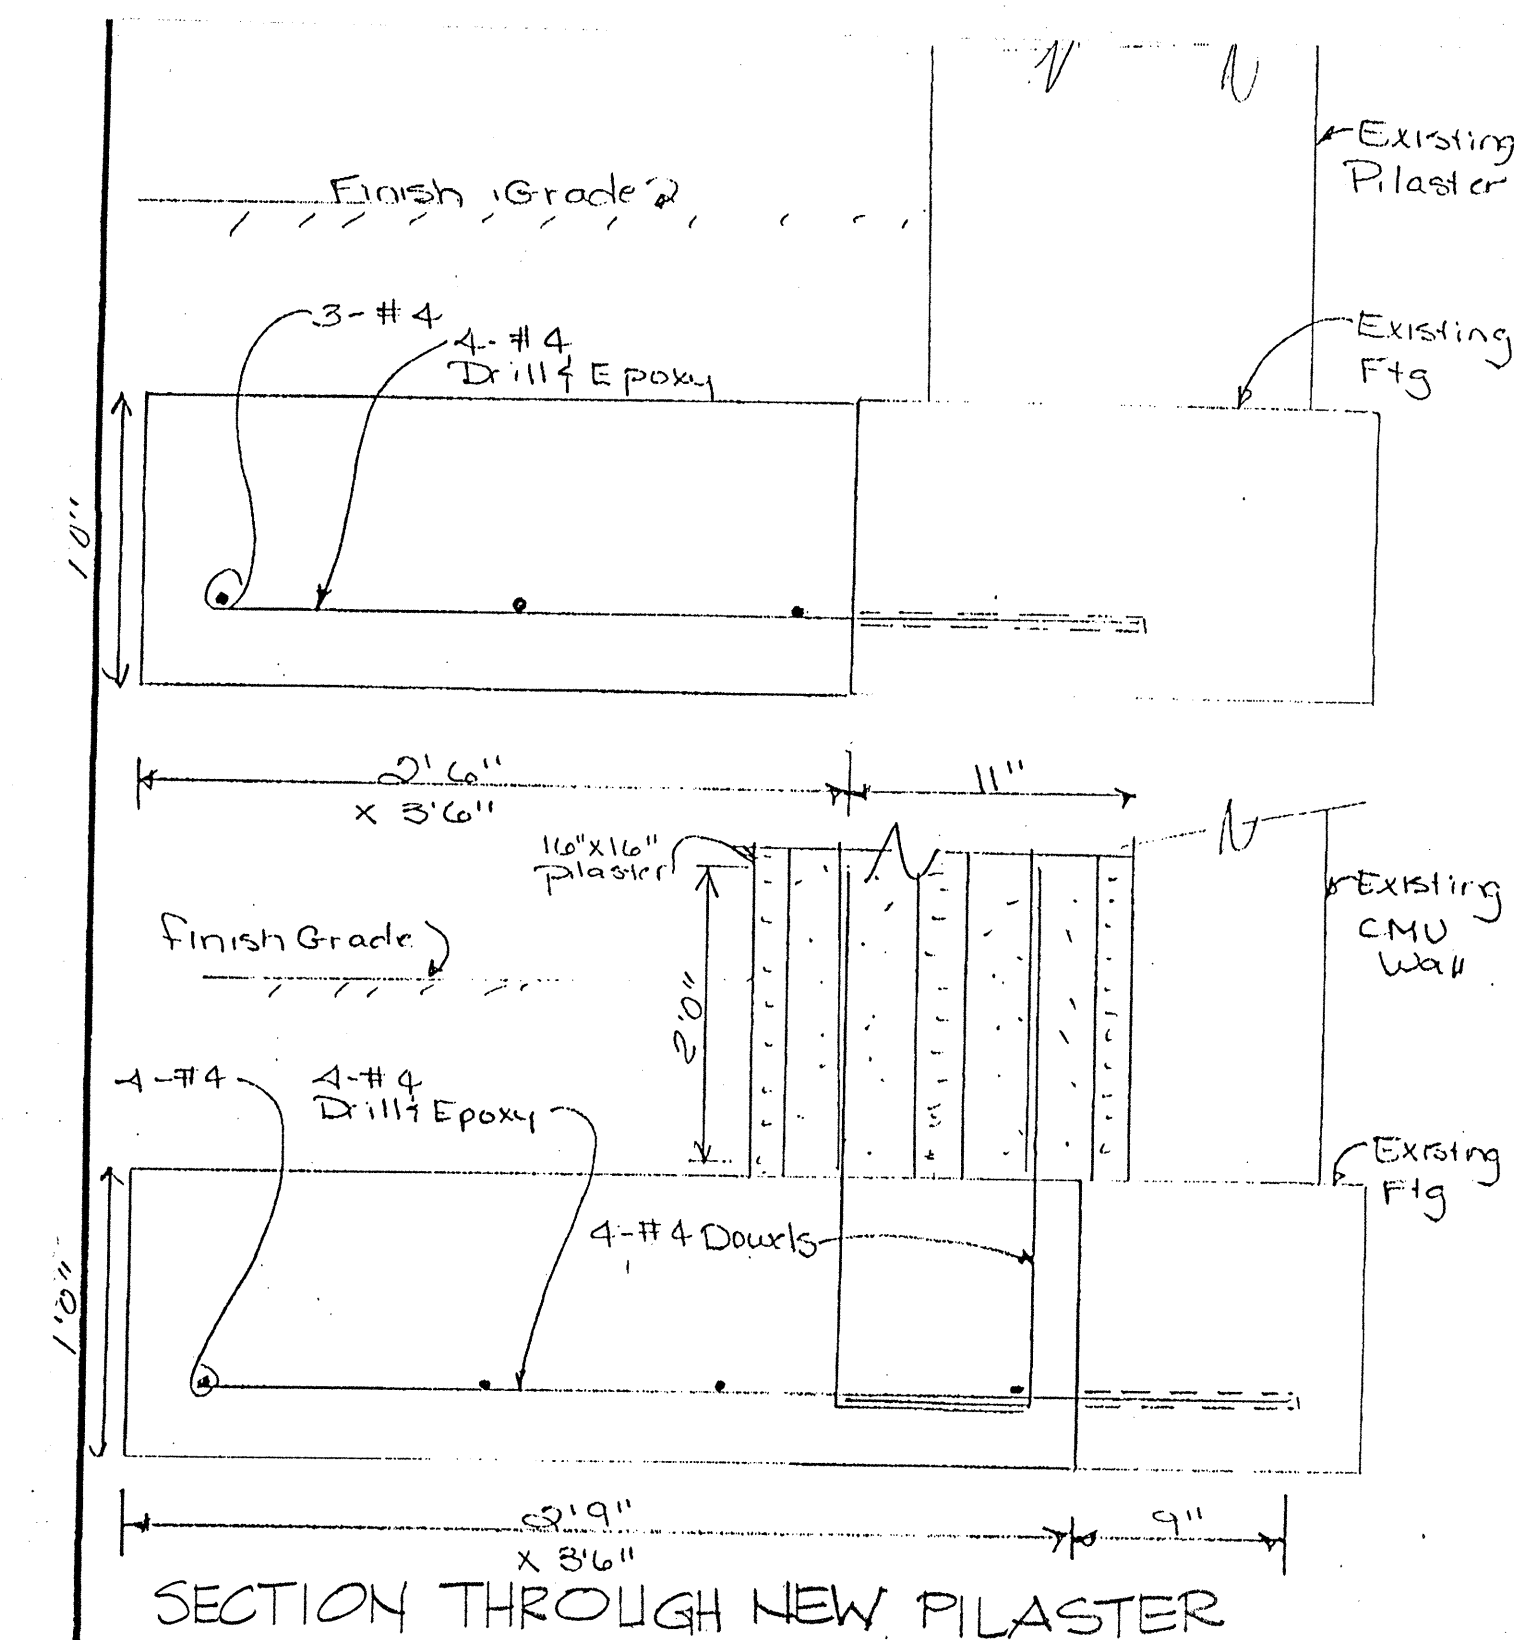 Existing
Pilaster
Finish Grade
3-#4
4-#4
Drill & Epoxy
Existing
Ftg
1'0"
2'6"
x 3'6"
11"
16"x16"
pilaster
Existing
CMU
Wall
Finish Grade
2'0"
4-#4
4-#4
Drill & Epoxy
Existing
Ftg
4-#4 Dowels
1'0"
2'9"
x 3'6"
9"
SECTION THROUGH NEW PILASTER